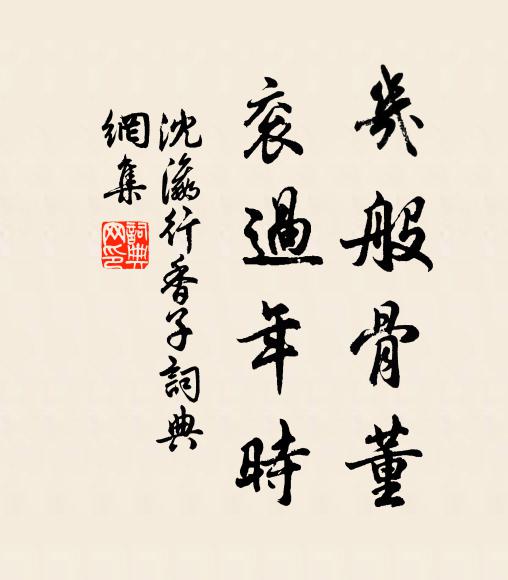 幾般骨董
衮過年時
沈瀛行香子詞典
網集
詞典
网印